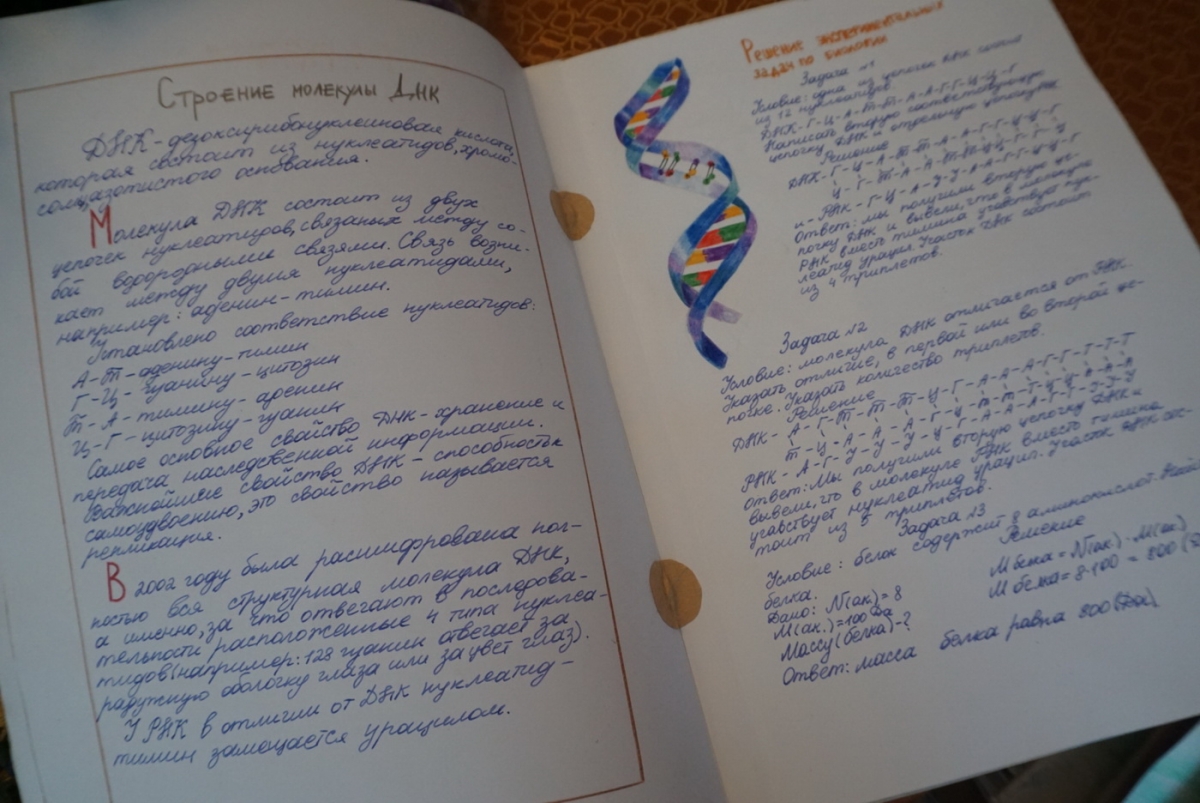 Строение молекулы ДНК
ДНК-дезоксирибонуклеиновая кислота,
которая состоит из нуклеатидов, хромо-
сом, азотистого основания.
Молекула ДНК состоит из двух
цепочек нуклеатидов, связаных между со-
бой водородными связями. Связь возни-
кает между двумя нуклеатидами,
например: аденин-тимин.
Установлено соответствие нуклеатидов:
А-Т-аденину-тимин
Г-Ц- гуанину-цитозин
Т-А-тимину-аденин
Ц-Г-цитозину-гуанин
Самое основное свойство ДНК-хранение и
передача наследственной информации.
Важнойшие свойство ДНК-способность к
самоудвоению, это свойство называется
репликация.
В 2002 году была расшифрована пол-
ностью вся структурная молекула ДНК,
а именно, за что отвегают в последова-
тельности расположенные 4 типа нуклеа-
тидов(например: 128 гуанин отвегает за
радужную оболочку глаза или за цвет глаз).
У РНК в отличии от ДНК нуклеатид-
тимин замещается урацилом.
Решение экспериментальных
задач по биологии
Задача №1
Условие: одна из цепочек ДНК состоит
из 12 нуклеатидов.
ДНК-Г-Ц-А-Т-Т-А-А-Г-Г-Ц-Ц-Г
Написать вторую соответствующую
цепочку ДНК и отдельную цепочку
Решение
ДНК-Г-Ц-А-Т-Т-А-А-Г-Г-Ц-Ц-Г
Ц-Г-Т-А-А-Т-Т-Ц-Ц-Г-Г-Ц
и-РНК-Г-Ц-А-У-У-А-А-Г-Г-Ц-Ц-Г
Ответ: мы получили вторую це-
почку ДНК и вывели, что в молекуле
РНК вместо тимина учавствует нук-
леатид урацил. Участок ДНК состоит
из 4 триплетов.
Задача №2
Условие: молекула ДНК отличается от РНК.
Указать отличие, в первой или во второй це-
почке. Указать количество триплетов.
Решение
ДНК- А-Г-Т-Т-Т-Ц-Г-А-А-А-Г-Г-Т-Т-Т
Т-Ц-А-А-А-Г-Ц-Т-Т-Т-Ц-Ц-А-А-А
РНК- А-Г-У-У-У-Ц-Г-А-А-А-Г-Г-У-У-У
Ответ: Мы получили вторую цепочку ДНК и
вывели, что в молекуле РНК вместо тимина
учавствует нуклеатид урацил. Участок ДНК сос-
тоит из 5 триплетов.
Задача №3
Условие: белок содержит 8 аминокислот.
белка.
Решение
Дано: N(ак)=8
М(ак.)=100 Да
Массу(белка)-?
М белка=N(ак)·М(ак)
М белка=8·100=800
Ответ: масса белка равна 800(Да)